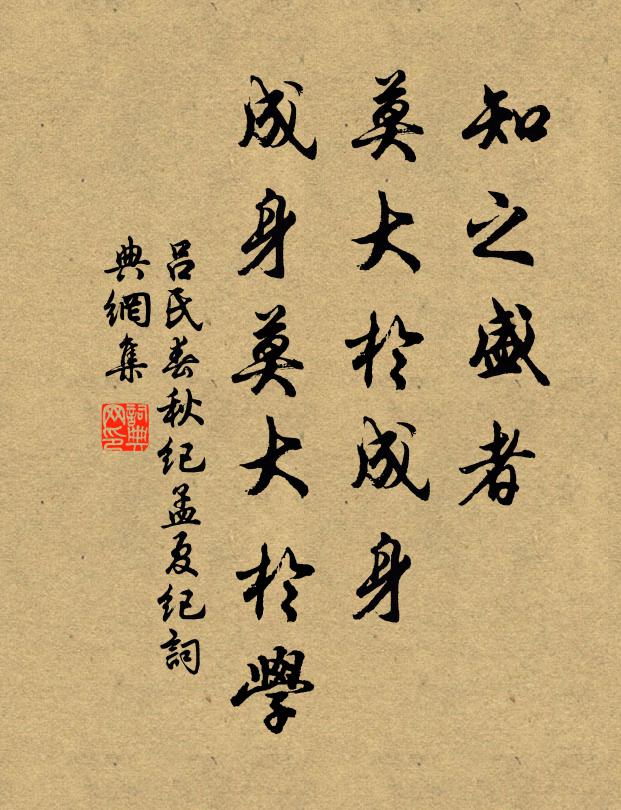 知之盛者
莫大於成身
成身莫大於學
吕氏春秋纪孟夏纪詞
典網集
詞典
网印